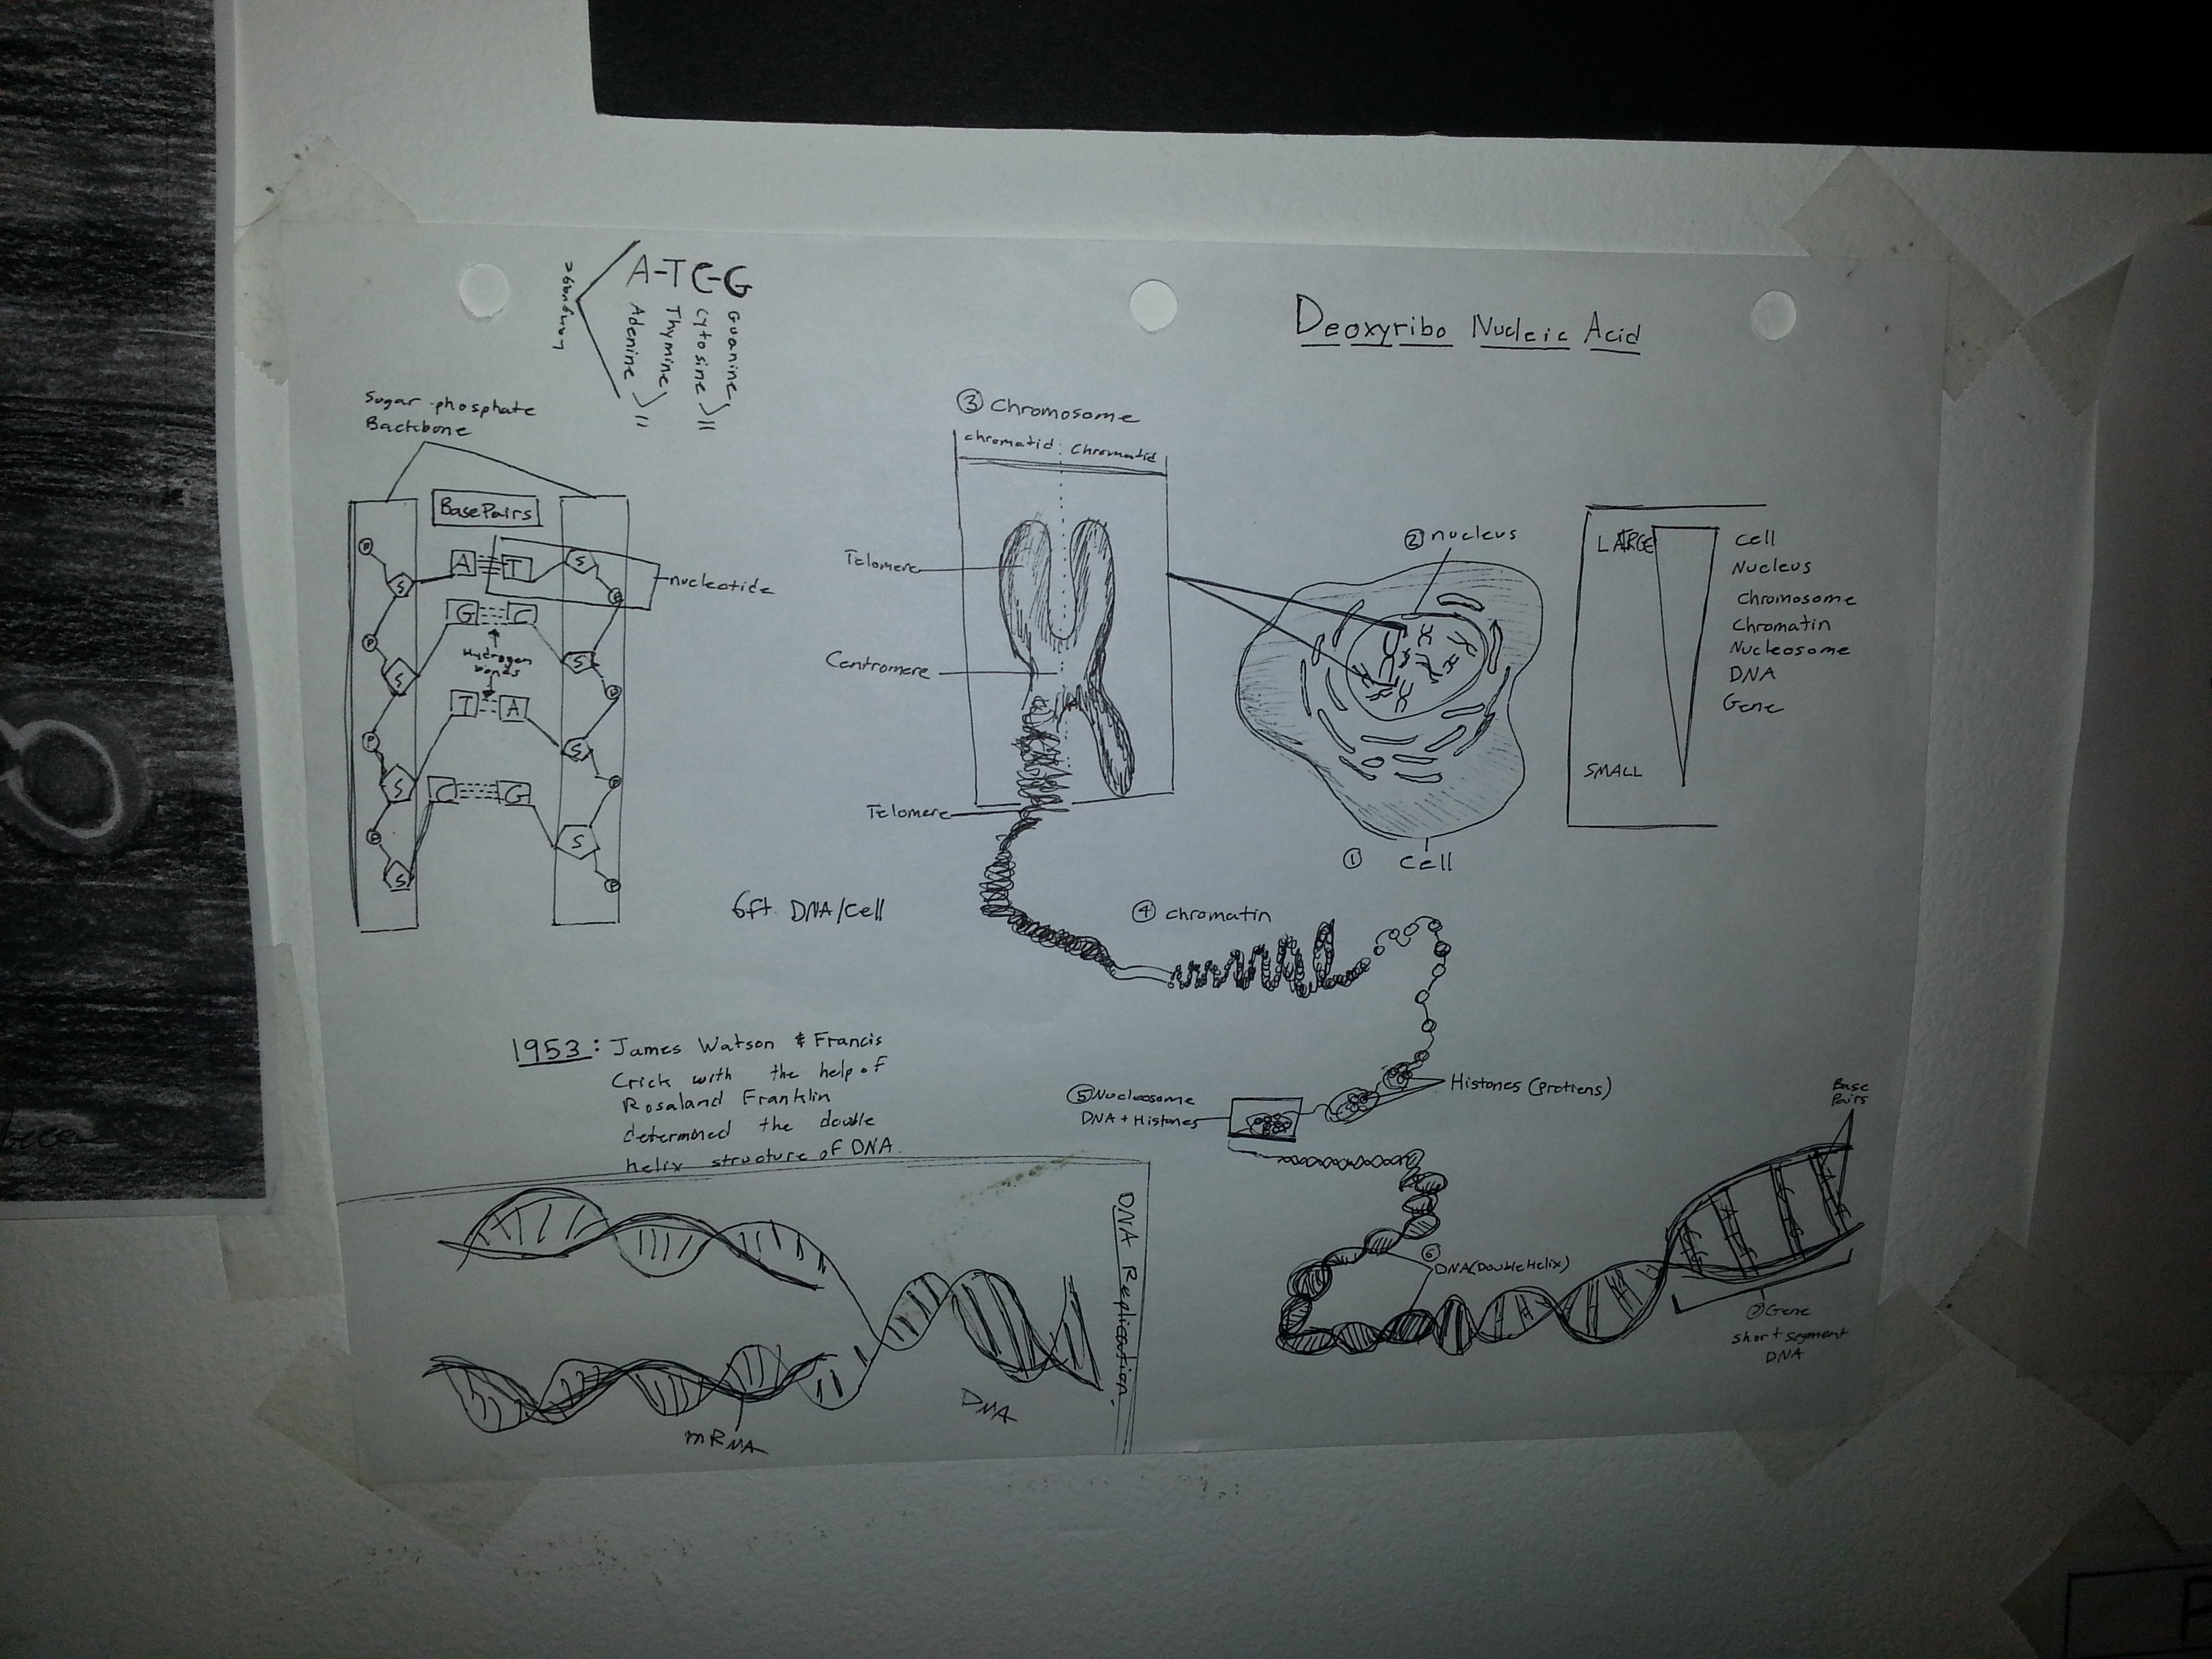 A-T C-G
Adenine
Thymine
Cytosine
Guanine
Language
Deoxyribo Nucleic Acid
Sugar-phosphate
Backbone
Base Pairs
A T
G C
Hydrogen
bonds
T A
C G
P
S
P
S
P
S
P
S
S
P
S
P
S
P
S
P
nucleotide
③ Chromosome
chromatid Chromatid
Telomere
Centromere
Telomere
② nucleus
① Cell
LARGE
SMALL
Cell
Nucleus
Chromosome
Chromatin
Nucleosome
DNA
Gene
6ft DNA/Cell
④ chromatin
1953: James Watson & Francis
Crick with the help of
Rosaland Franklin
determined the double
helix structure of DNA.
⑤ Nucleosome
DNA + Histones
Histones (Protiens)
Base
Pairs
⑥
DNA (Double Helix)
⑦ Gene
short segment
DNA
DNA Replication.
mRNA
DNA